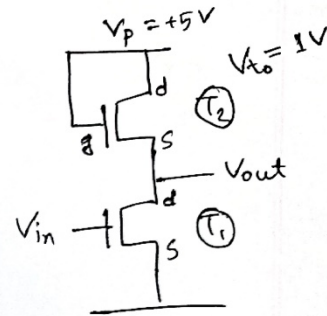 Vp = +5 V
Vto = 1V
d
T2
g
s
Vout
d
Vin
T1
s